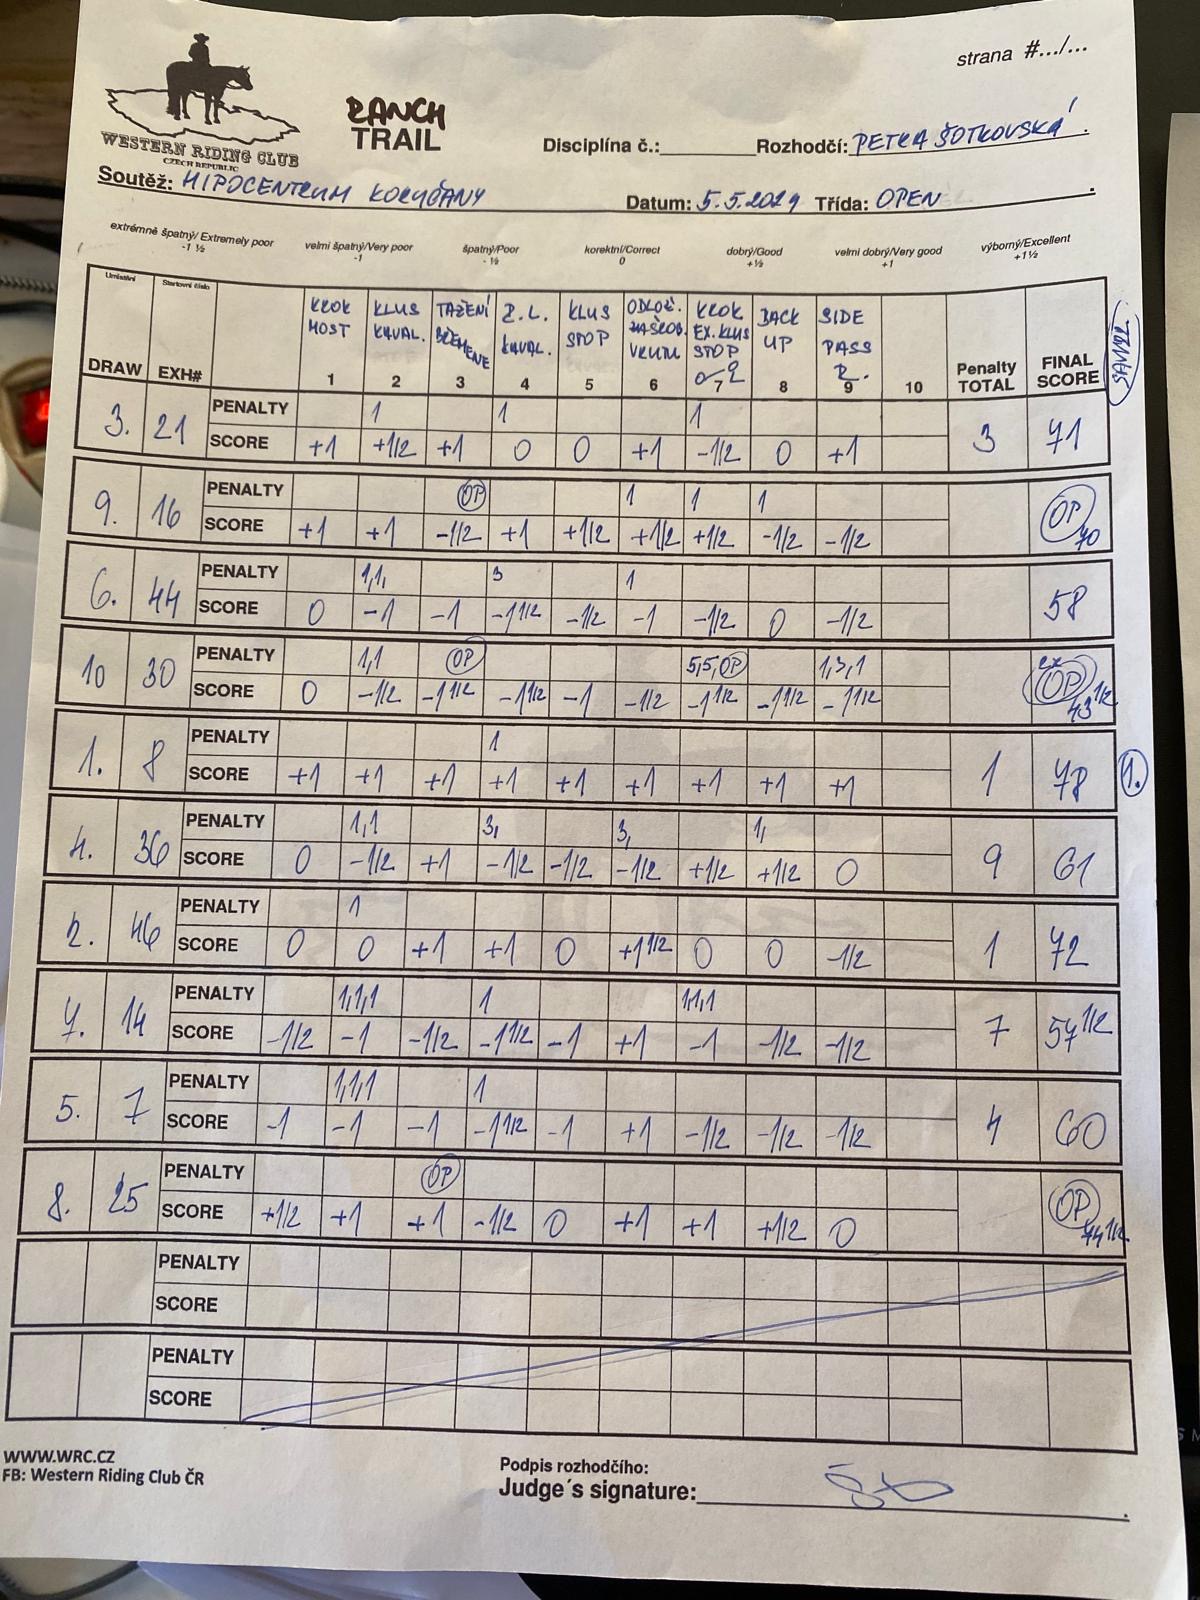 strana #.../...
WESTERN RIDING CLUB
CZECH REPUBLIC
RANCH
TRAIL
Disciplína č.:________Rozhodčí: PETRA ŠOTKOVSKÁ
Soutěž: HIPOCENTRUM KORYČANY Datum: 5.5.2024 Třída: OPEN
extrémně špatný/ Extremely poor -1 ½
velmi špatný/Very poor -1
špatný/Poor - ½
korektní/Correct 0
dobrý/Good +½
velmi dobrý/Very good +1
výborný/Excellent +1½
Umístění Startovní číslo
DRAW EXH# KROK MOST 1 KLUS KAVAL. 2 TAŽENÍ BŘEMENE 3 KAVAL. 4 KLUS STOP 5 VRUM 6 KROK EX. KLUS STOP 7 BACK UP 8 SIDE PASS R. 9 10 Penalty TOTAL FINAL SCORE
3. 21 PENALTY 1 1 1 3 71
SCORE +1 +1/2 +1 0 0 +1 -1/2 0 +1
9. 16 PENALTY OP 1 1 1 OP 70
SCORE +1 +1 -1/2 +1 +1/2 +1/2 +1/2 -1/2 -1/2
6. 44 PENALTY 1,1, 3 1 58
SCORE 0 -1 -1 -1 1/2 -1/2 -1 -1/2 0 -1/2
10 30 PENALTY 1,1 OP 5,5,OP 1,3,1 2x OP 43 1/2
SCORE 0 -1/2 -1 1/2 -1 1/2 -1 -1/2 -1 1/2 -1 1/2 -1 1/2
1. 8 PENALTY 1 1 78 1.
SCORE +1 +1 +1 +1 +1 +1 +1 +1 +1
4. 36 PENALTY 1,1 3, 3, 1, 9 61
SCORE 0 -1/2 +1 -1/2 -1/2 -1/2 +1/2 +1/2 0
2. 46 PENALTY 1 1 72
SCORE 0 0 +1 +1 0 +1 1/2 0 0 -1/2
7. 14 PENALTY 1,1,1 1 1,1,1 7 57 1/2
SCORE -1/2 -1 -1/2 -1 1/2 -1 +1 -1 -1/2 -1/2
5. 7 PENALTY 1,1,1 1 4 60
SCORE -1 -1 -1 -1 1/2 -1 +1 -1/2 -1/2 -1/2
8. 25 PENALTY OP OP 74 1/2
SCORE +1/2 +1 +1 -1/2 0 +1 +1 +1/2 0
PENALTY
SCORE
PENALTY
SCORE
WWW.WRC.CZ
FB: Western Riding Club ČR
Podpis rozhodčího:
Judge´s signature: